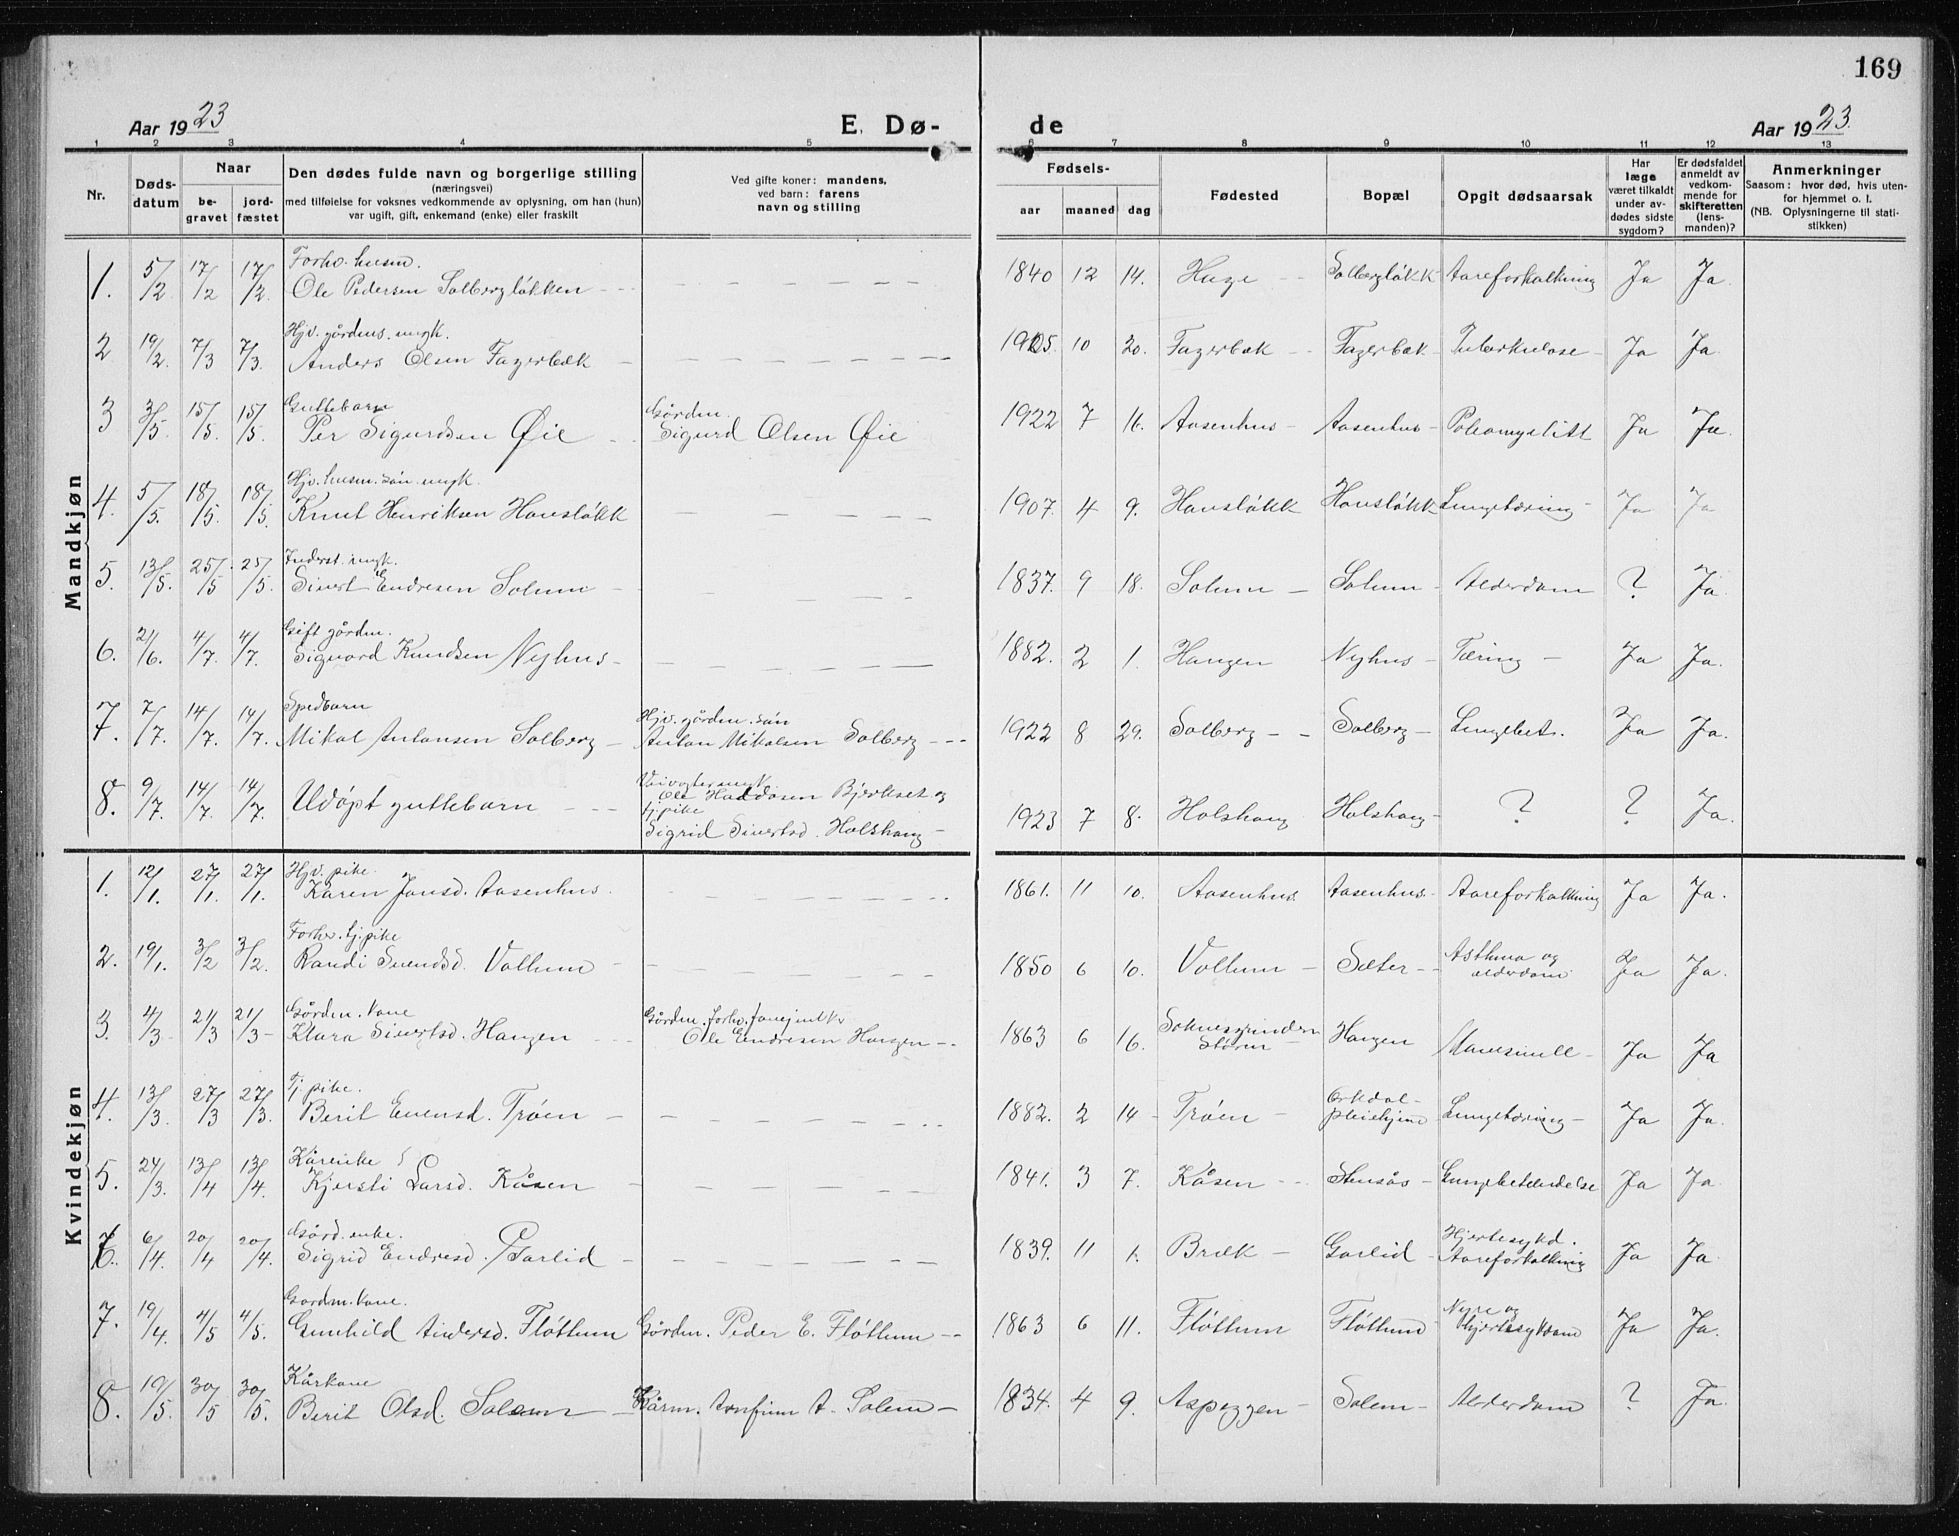 169
Aar 1923 E. Dø- de Aar 1923.
1 2 3 4 5 6 7 8 9 10 11 12 13
Nr. Døds-datum Naar be-gravet jord-fæstet
Den dødes fulde navn og borgerlige stilling
(næringsvei)
med tilføielse for voksnes vedkommende av oplysning, om han (hun)
var ugift, gift, enkemand (enke) eller fraskilt
Ved gifte koner: mandens,
ved barn: farens
navn og stilling
Fødsels-
aar maaned dag
Fødested Bopæl Opgit dødsaarsak
Har
læge
været tilkaldt
under av-
dødes sidste
sygdom?
Er dødsfaldet
anmeldt av
vedkom-
mende for
skifteretten
(lens-
manden)?
Anmerkninger
Saasom: hvor død, hvis uten-
for hjemmet o. l.
(NB. Oplysningerne til stati-
stikken)
Mandkjøn
Forhv. husm.
1. 5/2 17/2 17/2. Ole Pedersen Solbergløkken 1840 12 14. Hage Solbergløkk Aareforkalkning Ja Ja.
Hjv. gårdms. ungk.
2 19/2. 7/3 7/3. Anders Olsen Fagerbæk 1905. 10 20. Fagerbæk Fagerbæk Tuberkulose Ja Ja.
Guttebarn Gårdm.
3 3/5. 15/5. 15/5. Per Sigurdsen Øie Sigurd Olsen Øie 1922 7 16. Aasenhus Aasenhus Poleomyelitt Ja Ja.
Hjv. husm. søn ungk.
4. 5/5. 18/5. 18/5. Knut Henriksen Hansløkk 1907. 4 9. Hansløkk Hansløkk Lungetæring Ja Ja
Inderst. ungk.
5. 13/5. 25/5 25/5. Sivert Endresen Solum 1837. 9 18. Solum Solum Alderdom ? Ja.
Gift gårdm.
6. 21/6. 4/7. 4/7. Siguard Knudsen Nyhus 1882. 2 1. Haugen Nyhus Tæring Ja Ja.
Spedbarn Hjv. gårdm. søn
7. 7/7. 14/7. 14/7. Mikal Antonsen Solberg Anton Mikalsen Solberg 1922 8 29. Solberg Solberg Lungebet. Ja Ja.
8. 9/7. 14/7. 14/7. Udøpt guttebarn Ole Haldosen Bjerkset og
tj. pike
Sigrid Sivertsd. Holshaug 1923 7 8. Holshaug Holshaug ? ? Ja.
Kvindekjøn
Hjv. pike.
1. 12/1. 27/1. 27/1. Karen Jonsd. Aasenhus. 1861. 11 10. Aasenhus. Aasenhus. Aareforkalkning Ja Ja.
Forhv. tj. pike
2. 19/1. 3/2 3/2. Randi Svendsd. Vollum 1850 6 10. Vollum Sæter Asthma og alderdom Ja Ja.
Gårdm. kone Gårdm. forhv.
3. 4/3 21/3 21/3 Klara Sivertsd. Haugen Ole Endresen Haugen 1863 6 16. Støren Haugen Ja Ja
Tj. pike.
4. 13/3. 27/3 27/3. Berit Evensd. Trøen 1882. 2 14 Trøen Orkdal pleiehjem Lungetæring Ja Ja.
Kårenke
5. 24/3. 13/4 13/4. Kjersti Larsd. Kåsen 1841. 3 7. Kåsen Stensås Lungebetændelse Ja Ja.
Gård. enke.
6. 6/4. 20/4 20/4. Sigrid Endresd. Garlid 1839. 11 1. Bræk Garlid Hjertesykd. Aareforkalkning Ja Ja.
Gardm. kone.
7. 19/4. 4/5 4/5. Gunhild Andersd. Fløttum Gårdm. Peder E. Fløttum 1863 6 11. Fløttum Fløttum Nyre og hjertesykdom Ja Ja.
Kårkone
8. 19/5. 30/5 30/5. Berit Olsd. Solem Kårm. Arnfinn A. Solem 1834. 4 9. Aspeggen Solem Alderdom ? Ja.